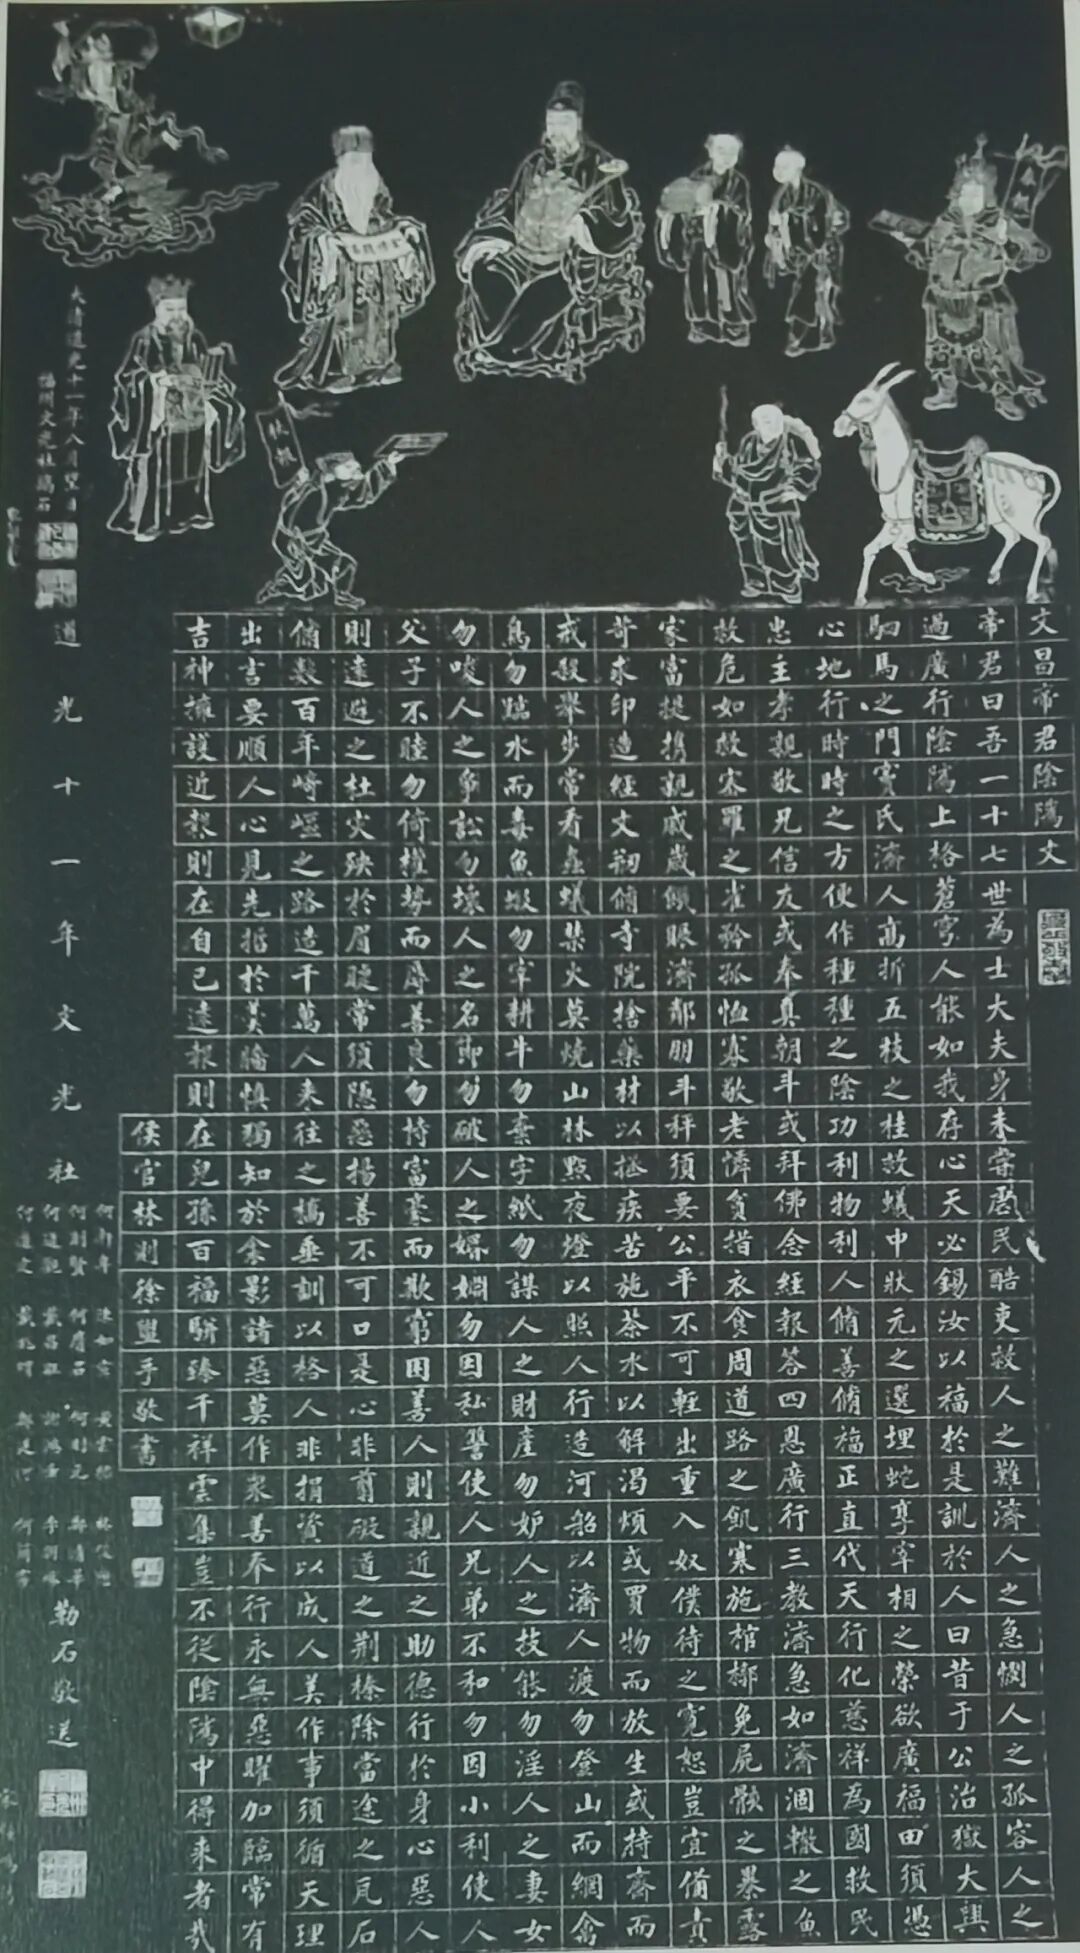 文昌帝君陰隲文
帝君曰吾一十七世為士大夫身未嘗虐民酷吏救人之難濟人之急憫人之孤容人之
過廣行陰隲上格蒼穹人能如我存心天必錫汝以福於是訓於人曰昔于公治獄大興
駟馬之門竇氏濟人高折五枝之桂救蟻中狀元之選埋蛇享宰相之榮欲廣福田須憑
心地行時時之方便作種種之陰功利物利人脩善脩福正直代天行化慈祥為國救民
忠主孝親敬兄信友或奉真朝斗或拜佛念經報答四恩廣行三教濟急如濟涸轍之魚
救危如救密羅之雀矜孤恤寡敬老憐貧措衣食周道路之飢寒施棺槨免屍骸之暴露
家富提携親戚歲饑賑濟鄰朋斗秤須要公平不可輕出重入奴僕待之寬恕豈宜備責
苛求印造經文刱脩寺院捨藥材以拯疾苦施茶水以解渴煩或買物而放生或持齋而
戒殺舉步常看蟲蟻禁火莫燒山林點夜燈以照人行造河船以濟人渡勿登山而網禽
鳥勿臨水而毒魚蝦勿宰耕牛勿棄字紙勿謀人之財產勿妒人之技能勿淫人之妻女
勿唆人之爭訟勿壞人之名節勿破人之婚姻勿因私讐使人兄弟不和勿因小利使人
父子不睦勿倚權勢而辱善良勿恃富豪而欺窮困善人則親近之助德行於身心惡人
則遠避之杜災殃於眉睫常須隱惡揚善不可口是心非翦礙道之荆榛除當途之瓦石
脩數百年崎嶇之路造千萬人來往之橋垂訓以格人非捐資以成人美作事須循天理
出言要順人心見先哲於羹牆慎獨知於衾影諸惡莫作衆善奉行永無惡曜加臨常有
吉神擁護近報則在自己遠報則在兒孫百福駢臻千祥雲集豈不從陰隲中得來者哉
侯官林則徐盥手敬書
大清道光十一年八月望日
福州文光社鐫石
道光十一年文光社
勒石敬送